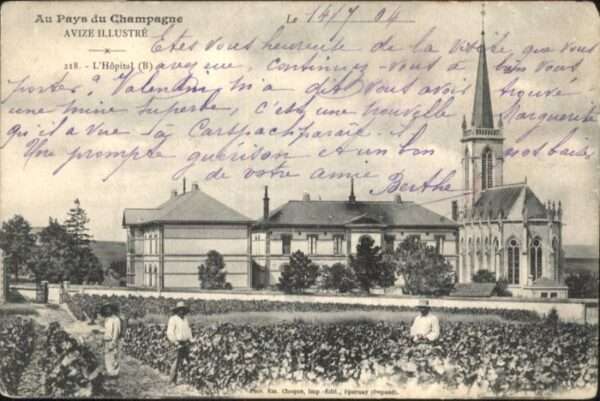 Au Pays du Champagne
Le 14/7 04
AVIZE ILLUSTRÉ
218. - L'Hôpital (B)
Etes vous heureuse de la visite que vous
avez eue. Continuez-vous à bien vous
porter? Valentin m'a dit vous avoir trouvé
une mine superbe, c'est une nouvelle Marguerite
qu'il a vue
Une prompte guérison et un bon
de votre amie Berthe
Phot. Em. Choque, Imp.-Édit., Épernay (Déposé).